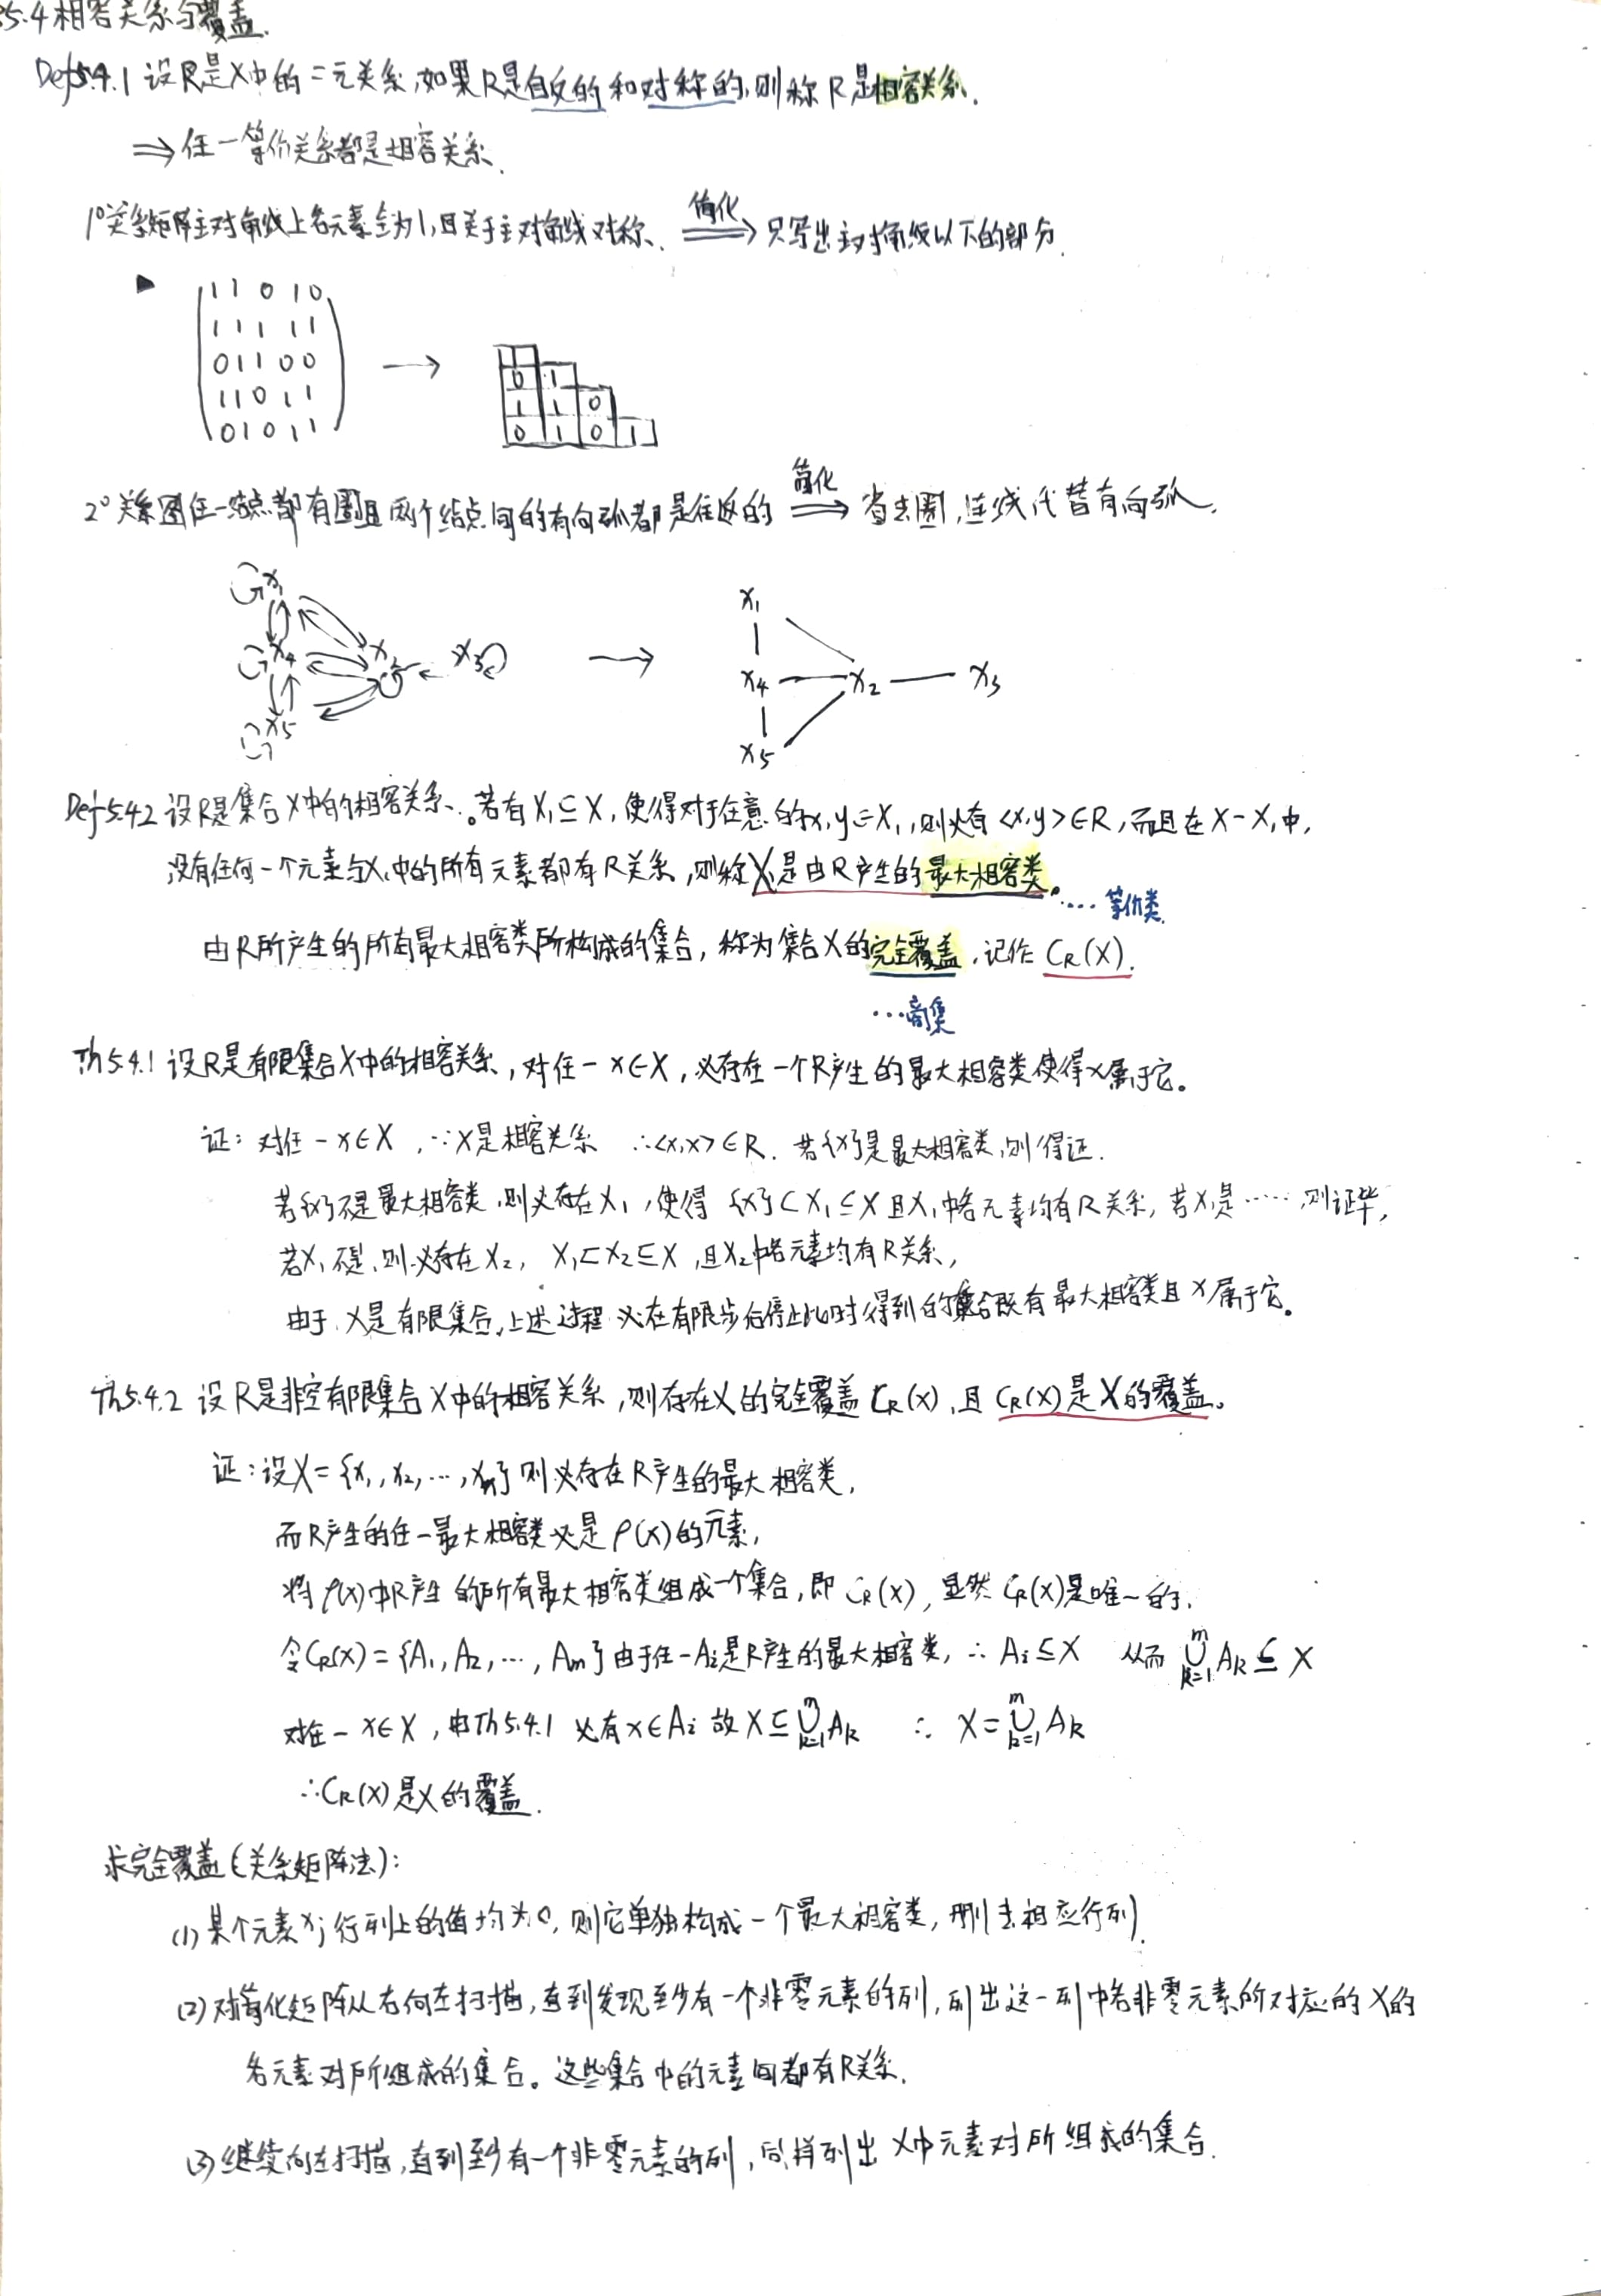 5.4 相容关系与覆盖.
Def5.4.1 设R是X中的二元关系,如果R是自反的和对称的,则称R是相容关系.
⇒任一等价关系都是相容关系.
1°关系矩阵主对角线上各元素全为1,且关于主对角线对称. 简化⇒ 只写出主对角线以下的部分.
1 1 0 1 0
1 1 1 1 1
0 1 1 0 0 →
1 1 0 1 1
0 1 0 1 1
1
0 1
1 1 0
0 1 0 1
2°关系图任一结点都有圈且两个结点间的有向弧都是往返的 简化⇒ 省去圈,连线代替有向弧.
x₁ x₁
x₄ x₂ x₃ → x₄ x₂ x₃
x₅ x₅
Def5.4.2 设R是集合X中的相容关系.若有X₁⊆X,使得对于任意的x,y∈X₁,则必有<x,y>∈R,而且在X-X₁中,
没有任何一个元素与X₁中的所有元素都有R关系,则称X₁是由R产生的最大相容类.
…等价类.
由R所产生的所有最大相容类所构成的集合,称为集合X的完全覆盖,记作 C_R(X).
…商集
Th5.4.1 设R是有限集合X中的相容关系,对任一x∈X,必存在一个R产生的最大相容类使得x属于它。
证: 对任一x∈X ,∵X是相容关系 ∴<x,x>∈R. 若{x}是最大相容类,则得证.
若{x}不是最大相容类,则必存在X₁,使得 {x}⊂X₁⊆X且X₁中各元素均有R关系,若X₁是……,则证毕,
若X₁不是,则必存在X₂, X₁⊂X₂⊆X,且X₂中各元素均有R关系,
由于X是有限集合,上述过程必在有限步后停止此时得到的集合既有最大相容类且x属于它。
Th5.4.2 设R是非空有限集合X中的相容关系,则存在X的完全覆盖C_R(X),且C_R(X)是X的覆盖。
证:设X={x₁,x₂,…,xₙ}则必存在R产生的最大相容类,
而R产生的任一最大相容类必是ρ(X)的元素,
将ρ(X)中R产生的所有最大相容类组成一个集合,即C_R(X),显然C_R(X)是唯一的.
令C_R(X)={A₁,A₂,…,Aₘ}由于任一Aᵢ是R产生的最大相容类,∴Aᵢ⊆X 从而 ⋃ₖ₌₁ᵐAₖ⊆X
对任一x∈X,由Th5.4.1 必有x∈Aᵢ 故X⊆⋃ₖ₌₁ᵐAₖ ∴ X=⋃ₖ₌₁ᵐAₖ
∴C_R(X)是X的覆盖.
求完全覆盖(关系矩阵法):
(1)某个元素xⱼ行列上的值均为0,则它单独构成一个最大相容类,删去相应行列.
(2)对简化矩阵从右向左扫描,直到发现至少有一个非零元素的列,列出这一列中各非零元素所对应的X的
各元素对所组成的集合。这些集合中的元素间都有R关系.
(3)继续向左扫描,直到至少有一个非零元素的列,同样列出X中元素对所组成的集合.